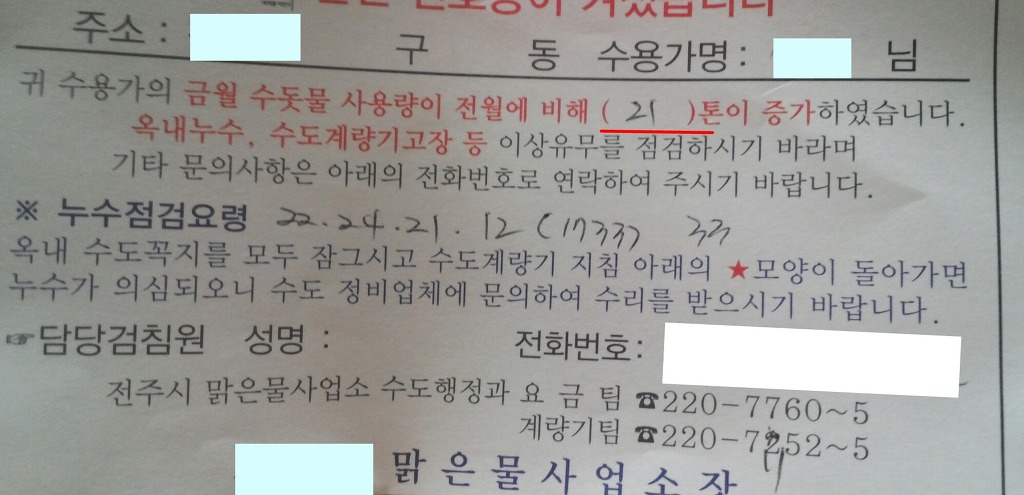 주소 : 구 동 수용가명 : 님
귀 수용가의 금월 수돗물 사용량이 전월에 비해 ( 21 )톤이 증가하였습니다.
옥내누수, 수도계량기고장 등 이상유무를 점검하시기 바라며
기타 문의사항은 아래의 전화번호로 연락하여 주시기 바랍니다.
※ 누수점검요령 22.24.21.12 (1733) 33
옥내 수도꼭지를 모두 잠그시고 수도계량기 지침 아래의 ★모양이 돌아가면
누수가 의심되오니 수도 정비업체에 문의하여 수리를 받으시기 바랍니다.
☞담당검침원 성명 : 전화번호:
전주시 맑은물사업소 수도행정과 요 금 팀 ☎220-7760~5
계량기팀 ☎220-7252~5
맑은물사업소장